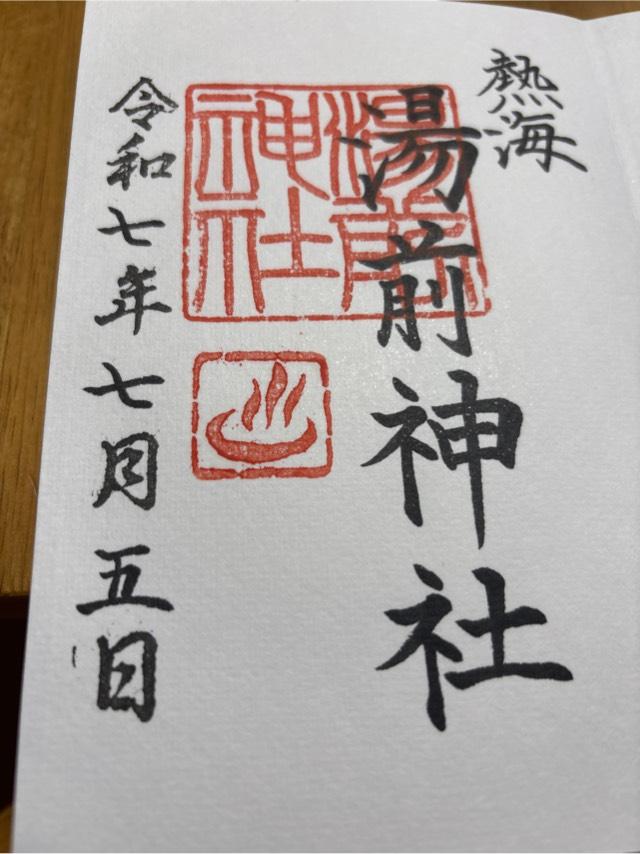 熱海
湯前神社
湯前
神社
令和七年七月五日